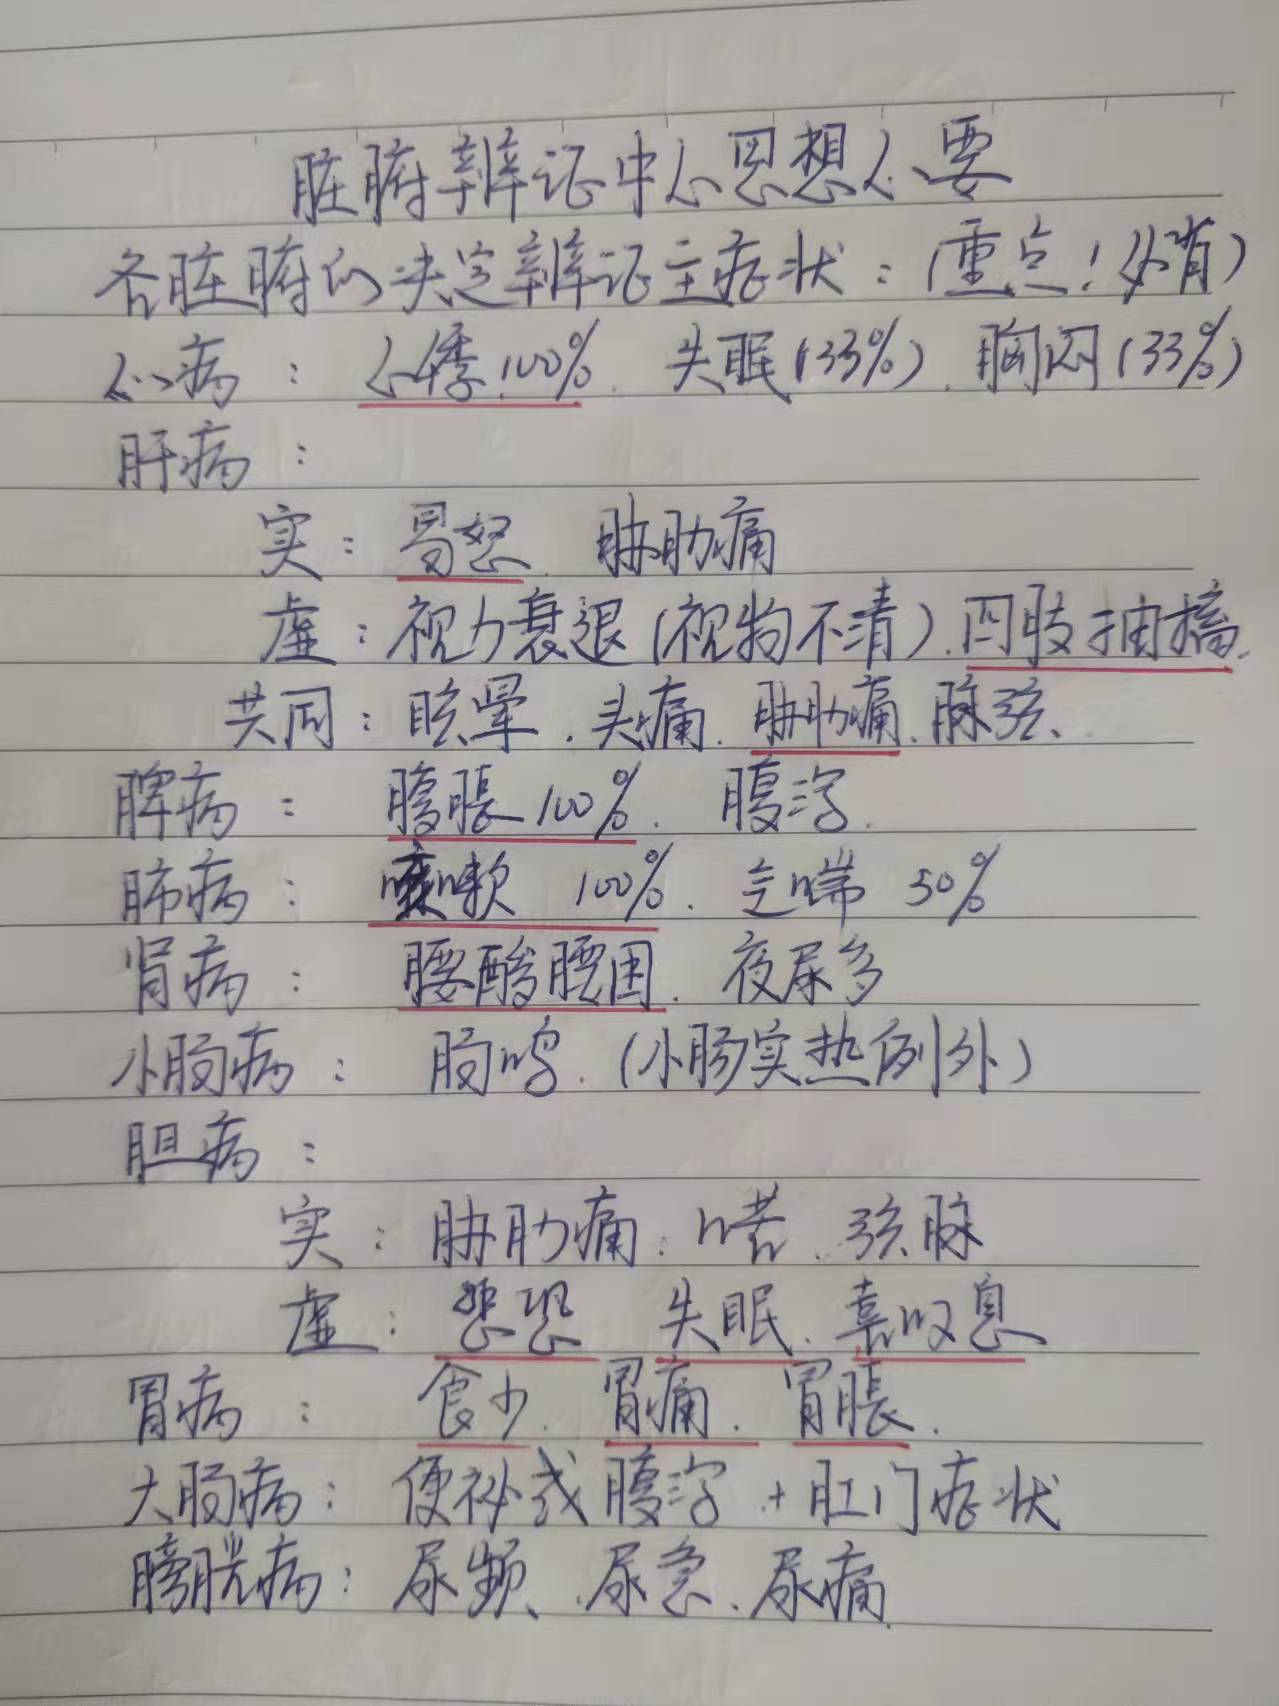 脏腑辨证中心思想心要
各脏腑的决定辨证主症状：（重点！必背）
心病：心悸100%、失眠（33%）、胸闷（33%）
肝病：
实：易怒、胁肋痛
虚：视力衰退（视物不清）、四肢抽搐、
共同：眩晕、头痛、胁肋痛、脉弦、
脾病：腹胀100%、腹泻、
肺病：咳嗽100%、气喘50%
肾病：腰酸腰困、夜尿多
小肠病：肠鸣、（小肠实热例外）
胆病：
实：胁肋痛、口苦、弦脉
虚：悲恐 失眠、喜叹息
胃病：食少、胃痛、胃胀、
大肠病：便祕或腹泻+肛门症状
膀胱病：尿频、尿急、尿痛、